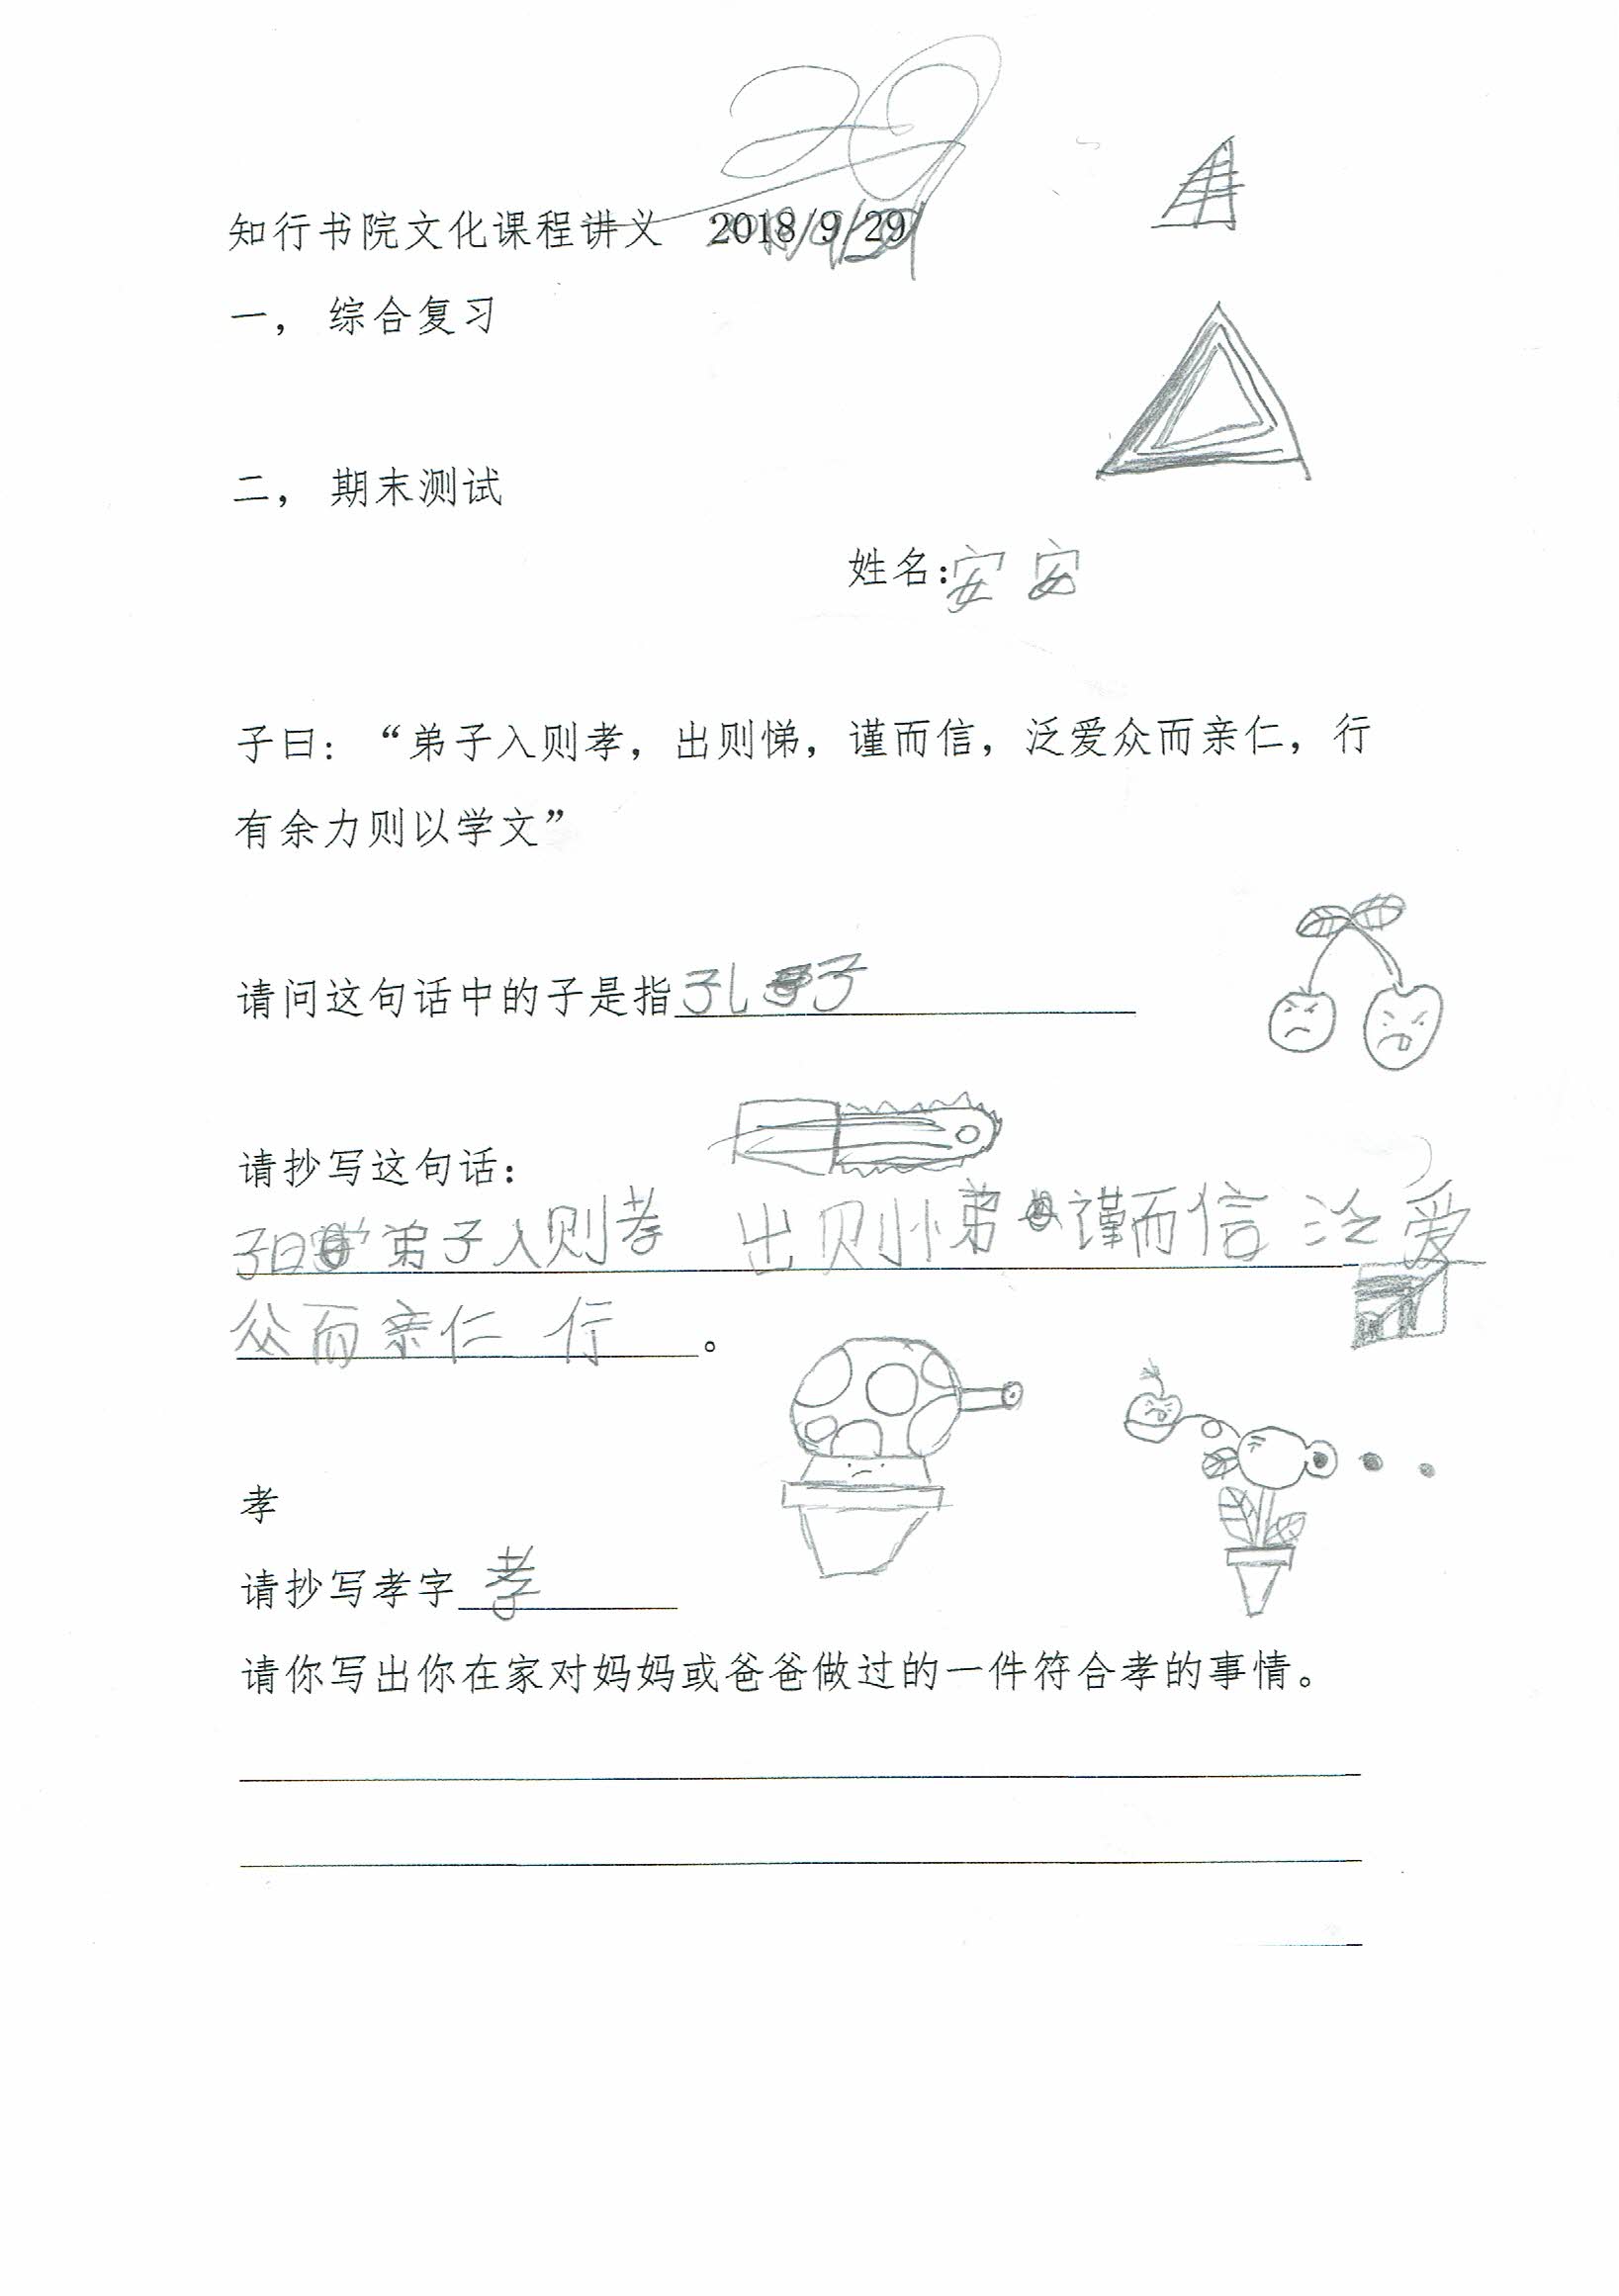 29
知行书院文化课程讲义 2018/9/29
一， 综合复习
二， 期末测试
姓名:安安
子曰：“弟子入则孝，出则悌，谨而信，泛爱众而亲仁，行
有余力则以学文”
请问这句话中的子是指孔子
请抄写这句话：
子曰 弟子入则孝 出则悌 谨而信 泛爱
众而亲仁 行。
孝
请抄写孝字 孝
请你写出你在家对妈妈或爸爸做过的一件符合孝的事情。